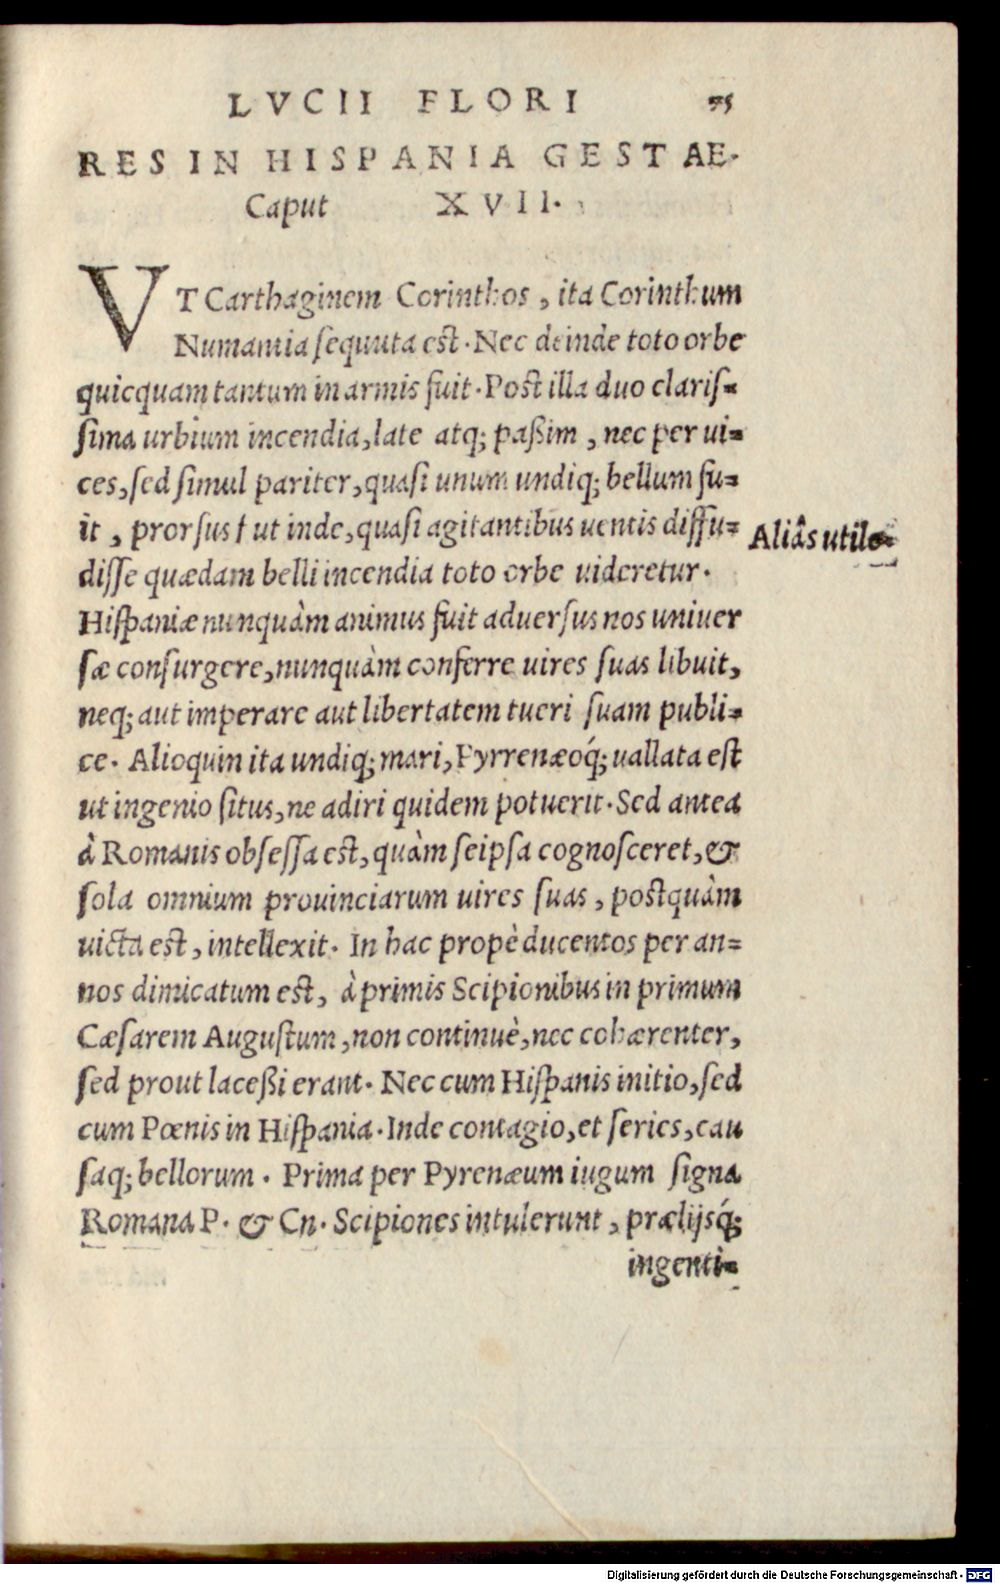 LVCII FLORI 75
RES IN HISPANIA GESTAE.
Caput XVII.
VT Carthaginem Corinthos, ita Corinthum
Numantia ſequuta eſt. Nec deinde toto orbe
quicquam tantum in armis fuit. Poſt illa duo clariſ=
ſima urbium incendia, late atq; paßim, nec per ui=
ces, ſed ſimul pariter, quaſi unum undiq; bellum fu=
it, prorſus † ut inde, quaſi agitantibus uentis diffu= Aliâs utile
diſſe quædam belli incendia toto orbe uideretur.
Hiſpaniæ nunquàm animus fuit aduerſus nos uniuer
ſæ conſurgere, nunquàm conferre uires ſuas libuit,
neq; aut imperare aut libertatem tueri ſuam publi=
ce. Alioquin ita undiq; mari, Pyrrenæoq́; uallata eſt
ut ingenio ſitus, ne adiri quidem potuerit. Sed antea
à Romanis obſeſſa eſt, quàm ſeipſa cognoſceret, &
ſola omnium prouinciarum uires ſuas, poſtquàm
uicta eſt, intellexit. In hac propè ducentos per an=
nos dimicatum eſt, à primis Scipionibus in primum
Cæſarem Auguſtum, non continuè, nec cohærenter,
ſed prout laceßi erant. Nec cum Hiſpanis initio, ſed
cum Pœnis in Hiſpania. Inde contagio, et ſeries, cau
ſaq; bellorum. Prima per Pyrenæum iugum ſigna
Romana P. & Cn. Scipiones intulerunt, prælijsq́;
ingenti=
Digitalisierung gefördert durch die Deutsche Forschungsgemeinschaft - DFG